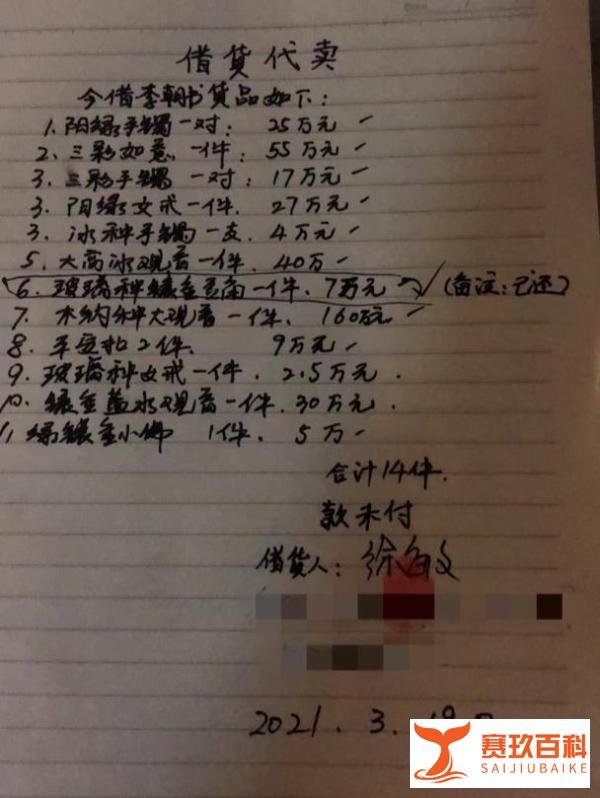 借货代卖
今借李朝书货品如下:
1. 阳绿手镯一对: 25万元
2. 三彩如意一件: 55万元
3. 三彩手镯一对: 17万元
3. 阳绿女戒一件. 27万元
3. 冰种手镯一支. 4万元
5. 大高冰观音一件. 40万
6. 玻璃种镶金 一件. 7万元 (备注:已还)
7. 木纳种大观音一件. 160万元
8. 平安扣2件. 9万元
9. 玻璃种女戒一件. 2.5万元.
10. 镶金蓝水观音一件. 30万元.
11 绿镶金小佛 1件. 5万
合计14件.
款未付
借货人: 徐 文
2021. 3.
赛玖百科
SAIJIUBAIKE